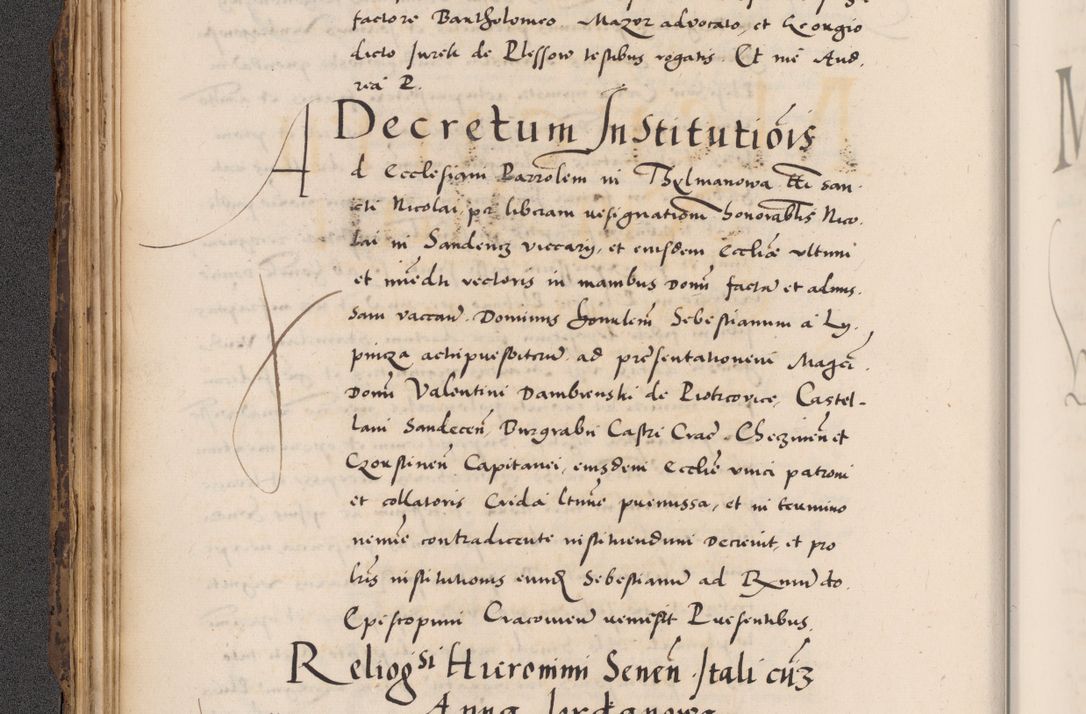 factore Bartholomeo Mazur advocato, et Georgio
dicto Jurek de Plessow testibus rogatis. Et me And.
reā P.
Decretum Institutiōis
Ad Ecclesiam Parrōlem in Thylmanowa tt̄i san-
cti Nicolai, per liberam resignationem honorabilis Nico.
lai in Sandencz viccarij, et eiusdem Eccliæ ultimi
et immēdti rectoris in manibus Domī factā et admis.
sam vaccan̄. Dominus honnlem̄ Sebestianum a Ly.
pnicza achipresbiterū ad prēsentationem Magci
Domī Valentini Dambienski de Piotrcovice, Castel-
lani Sandecen̄, Burgrabii Castri Crac̄ Checzinen̄ et
Czorstinen̄ Capitanei, eiusdem Eccliē unici patroni
et collatoris Crida ltimē premissa, et in termino
nemine contradicente instituendum Decrevit, et pro
lrīs institutionis eund̄ Sebestianū ad Rx̄mū do.
Episcopum Cracovien̄ remisit Presentibus.
Religiosi Hieronimi Senen̄ Itali cū
Anna Jordanowa